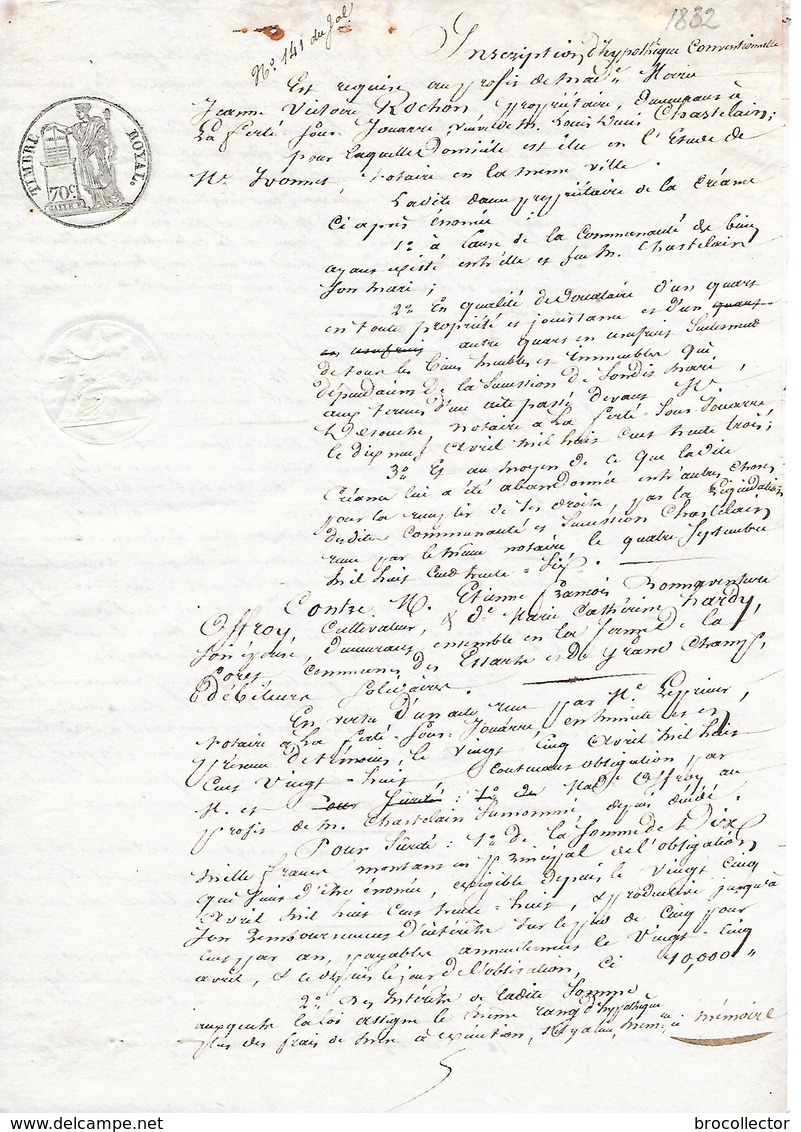 1832
No. 141 du Jal.
Inscription d'hypothèque Conventionnelle
Est requise au profit de Made. Marie
Jeanne Victoire Rochon, propriétaire, demeurant à
La ferté sous Jouarre, veuve de M. Louis Denis Chastelain;
pour laquelle Domicile est élu en l'Etude de
Me. Ivonnet, notaire en la meme ville.
TIMBRE ROYAL.
70c
Ladite dame propriétaire de la Créance
Ci après énoncée :
1o. à Cause de la Communauté de biens
ayant existé entr'elle et feu M. Chastelain
Son mari;
2o. En qualité de Donataire d'un quart
en toute propriété et jouissance et d'un quart
en usufruit autre quart en usufruit Seulement
de tous les biens meubles et Immeubles qui
dépendaient de la Succession de Sondit mari,
aux termes d'un acte passé devant Me
notaire à La ferté Sous Jouarre
le dix neuf avril mil huit Cent trente trois;
3o. Et au moyen de ce que ladite
Créance lui a été abandonnée entr'autres choses
pour la remplir de ses droits, par la Liquidation
desdites Communauté et Succession Chastelain
reçue par le meme notaire, le quatre Septembre
mil huit Cent trente-six.
Contre M. Etienne François Bonnaventure
Offroy, Cultivateur, & de. Marie Cathérine hardy,
Son épouse, demeurant ensemble en la ferme de la
communes des Essarts et du Grand Champ,
Débiteurs Solidaires.
En vertu d'un acte reçu par Me Leprieur,
notaire à La ferté-Sous-Jouarre, en minute et en
présence de témoins, le Vingt Cinq Avril mil huit
Cent Vingt-huit, Contenant obligation par
M. et pour Sûreté: 1o. de Made Offroy au
profit de M. Chastelain Susnommé, depuis décédé.
Pour Sûreté: 1o. de la Somme de Dix
mille francs montant en principal de l'obligation
qui vient d'être énoncée, exigible depuis le vingt Cinq
Avril mil huit Cent trente-huit, & productive jusqu'à
Son remboursement d'intérêts Sur le pied de Cinq pour
Cent par an, payables annuellement le Vingt-Cinq
avril, & ce depuis le jour de l'obligation, Ci 10,000 "
2o. Des Intérêts de Ladite Somme
auxquels la loi assigne le meme rang d'hypothèque
plus des frais de mise à exécution, s'il y a lieu, mémoire
brocollector